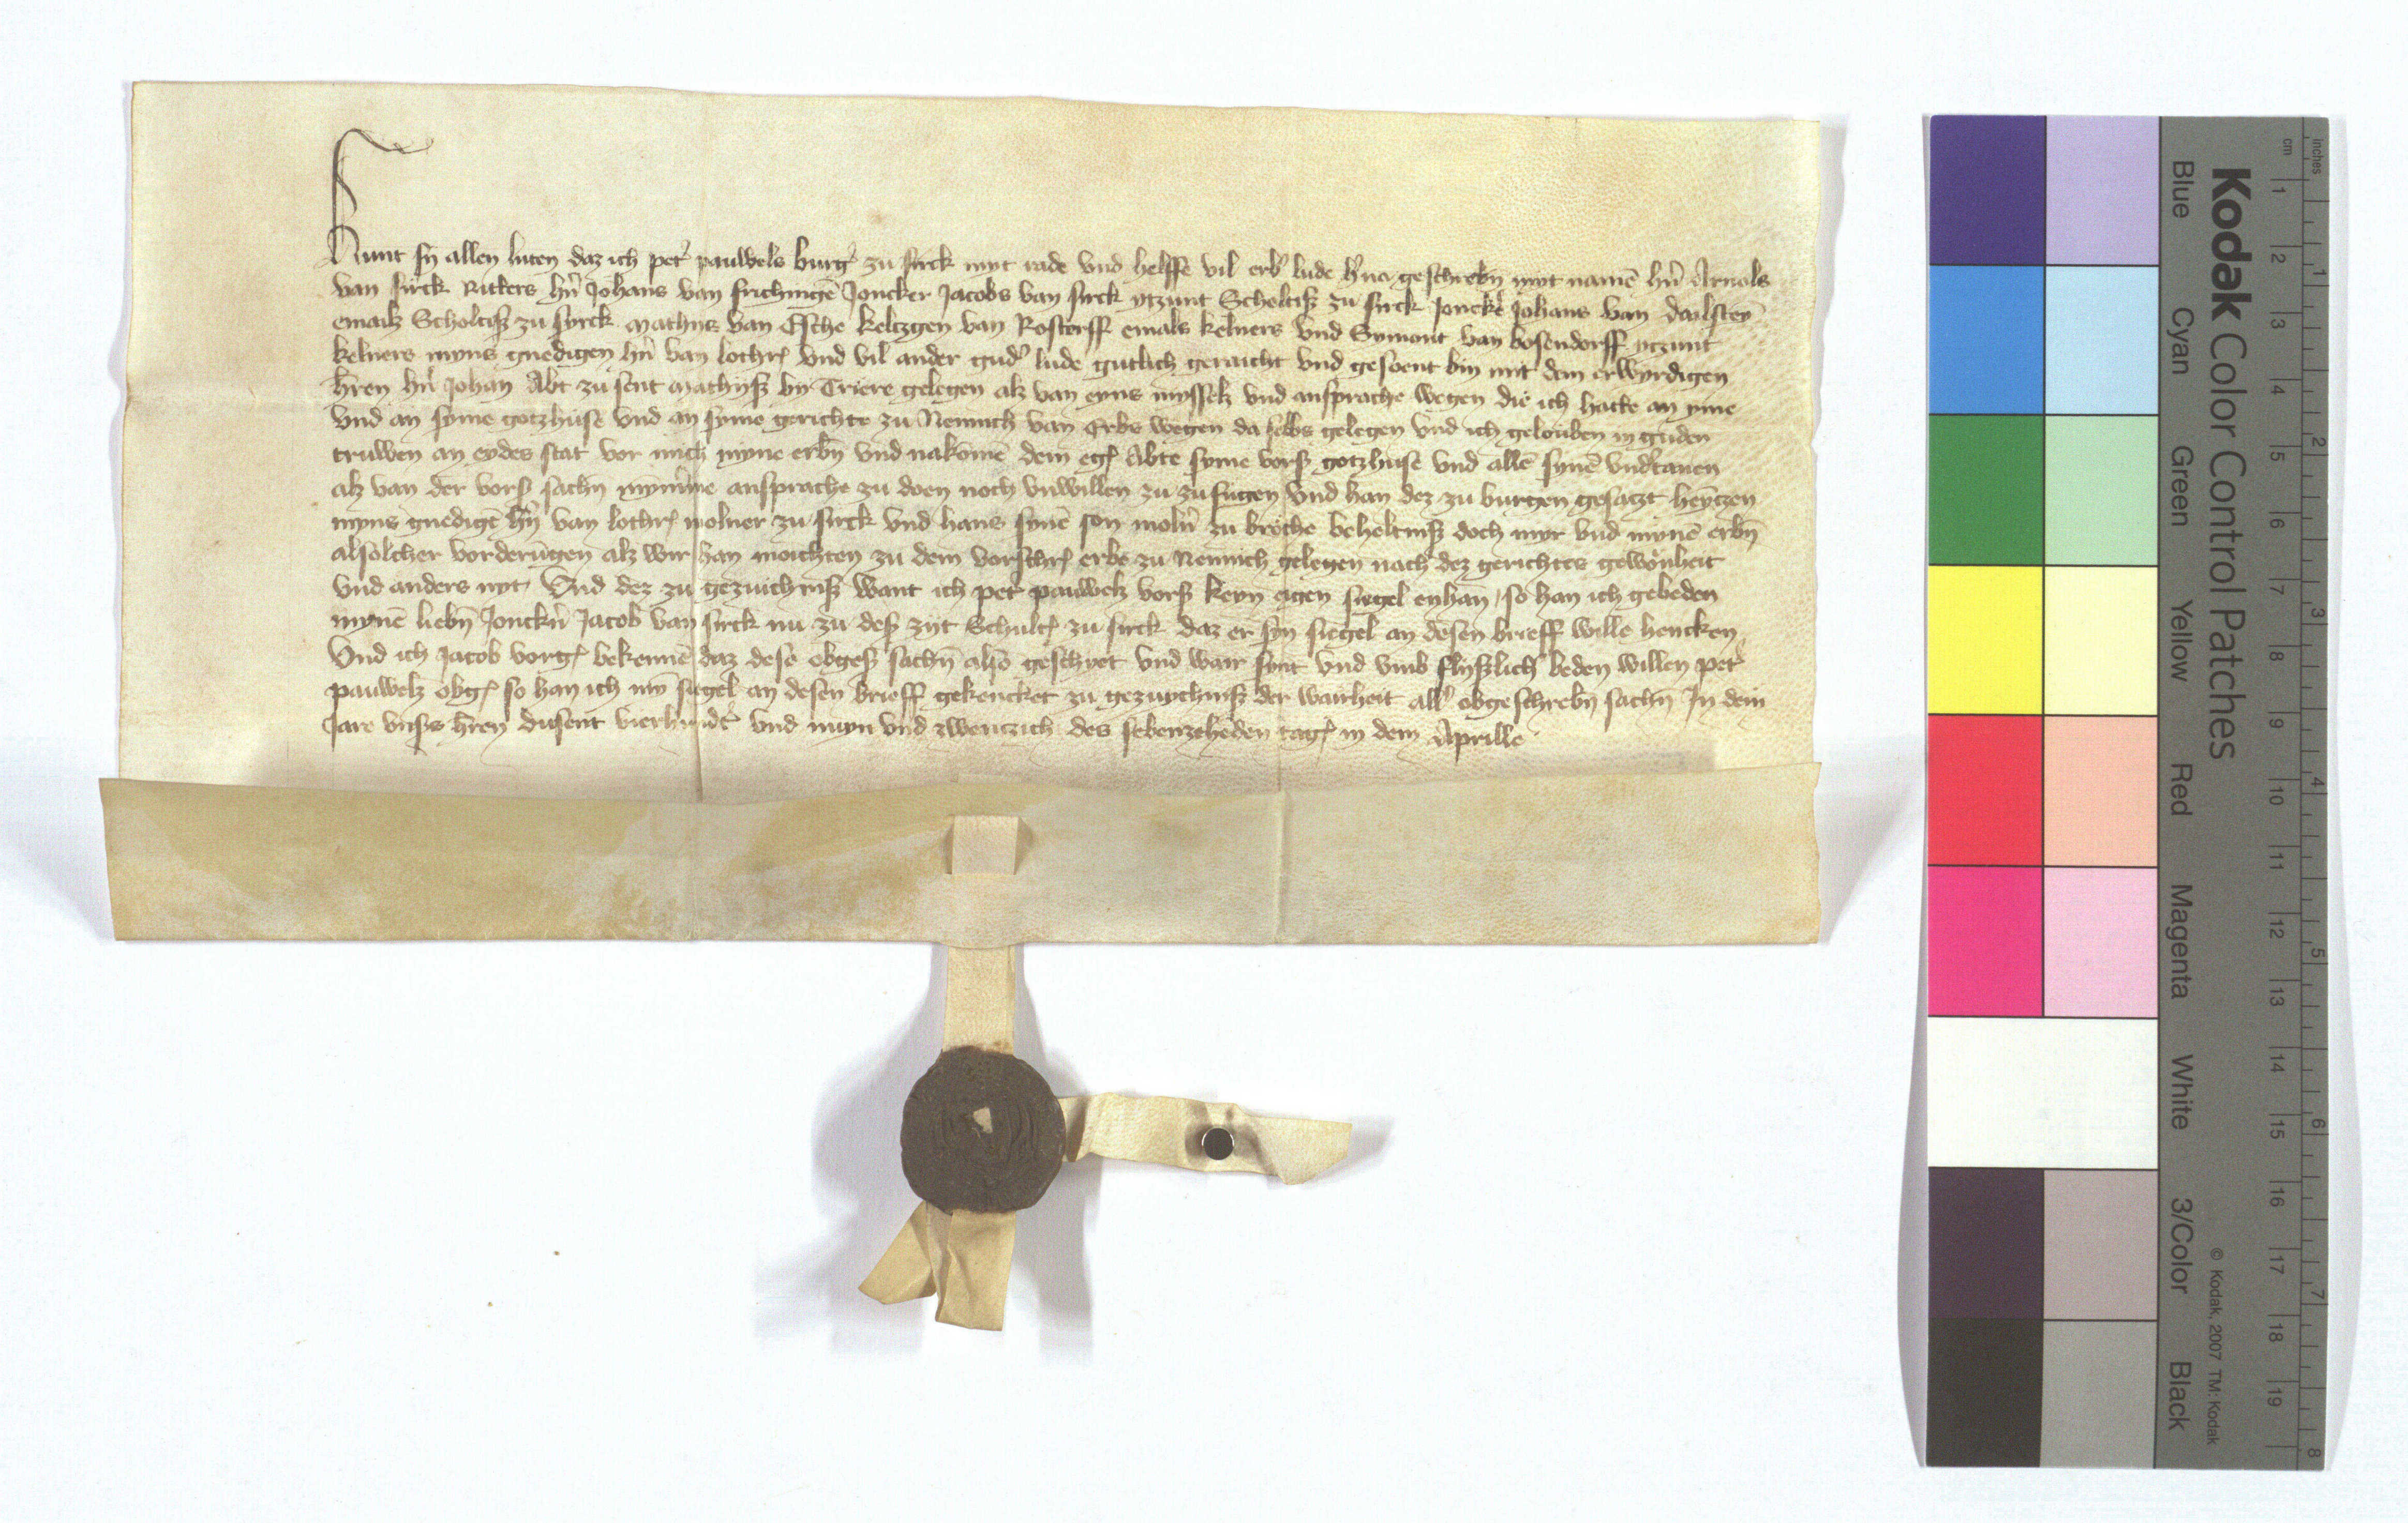 Kunt sy allen luten daz ich pet' pauwels burg' zu sirck myt rade vnd helffe vil erb' lude h'na geschrebn myt namē hn̄ Arnols
van sirck Ritters hn̄ Johans van frichingē Joncker Jacobs van sirck ytzunt Scholtiß zu sirck Joncker Johans van
emailz Scholtiß zu syrck mathys van Esche keltzgen van Rosterff emals kelners vnd Symont van bosendorff ytzunt
kelners myns gnedigen hn̄ van lothr vnd vil ander gud' lude gutlich geraicht vnd gesoent bin mit dem erwyrdigen
hren hn̄ Johan Abt zu sent mathyß by Triere gelegen alz van eyns myssels vnd ansprache wegen die ich hatte an yme
vnd an syme gotzhuse vnd an syme gerichte zu Nennich van Erbs wegen da selbs gelegen vnd ich gelouben in guden
truwen an eydes stat vor mich myne erbn̄ vnd nakomē dem eg Abte syme vorß gotzhuse vnd allē synē vnd'tanen
alz van der vorß sachn ansprache zu doen noch vnwillen zu zufugen vnd han dez zu burgen gesatzt heytzen
myns gnedigē hn̄ van lothr molner zu sirck vnd hans synē son moln̄ zu broche beheltniß doch myr vnd mynē erbn̄
alsolcher vorderūgen alz wir han moichten zu dem vorschr erbe zu Nennich gelegen nach dez gerichtes gewonheit
vnd anders nyt Vnd dez zu gezuichniß want ich pet' pauwelz vorß keyn eigen siegel enhan / so han ich gebeden
mynē liebn̄ Jonckn̄ Jacob van sirck nu zu deß zyt Schult zu sirck daz er syn siegel an desen brieff wille hencken
Vnd ich Jacob vorg bekennē daz dese obgeß sachn̄ also geschyet vnd wair synt vnd vmb flyßlich beden willen pet'
pauwelz obg so han ich my siegel an desen brieff gehencket zu gezuychniß der wairheit all' obgeschrebn̄ sachn̄ In dem
Jare vnsers hren dusent vierhundt' vnd nuyn vnd zwentzich des sebenzeheden tag in dem Aprille
Kodak Color Control Patches
Blue Cyan Green Yellow Red Magenta White 3/Color Black
© Kodak, 2007 TM: Kodak
inches 1 2 3 4 5 6 7 8
cm 1 2 3 4 5 6 7 8 9 10 11 12 13 14 15 16 17 18 19